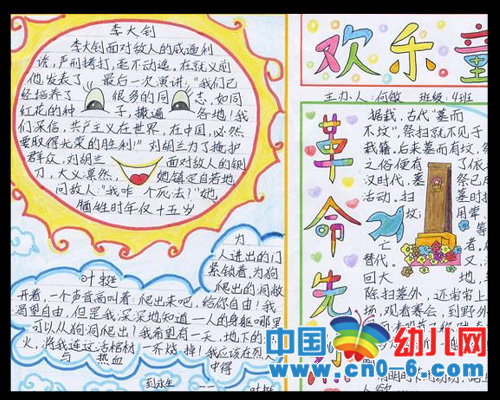 李大钊
李大钊面对敌人的威逼利
诱,严刑拷打,毫不动摇,在就义前
他发表了 最后一次演讲:“我们已
经培养了 很多的同 志,如同
红花的种 子,撒遍 各地!我
们深信,共产主义在世界,在中国,必然
要取得光荣的胜利!”刘胡兰为了掩护
群众,刘胡兰 面对敌人的铡
刀,大义凛然, 她镇定自若地
问敌人:“我咋 个死法?”她
牺牲时年仅十五岁
叶挺
为
人进出的门
紧锁着,为狗
爬出的洞敞
开着,一个声音高叫着:爬出来吧,给你自由!我
渴望自由,但是我深深地知道——人的身躯哪里
可以从狗洞爬出!我希望有一天,地下的
火,将我连这活棺材 一齐烧掉!我应该在烈
与 热血 中得
到永生 —— 叶挺
欢乐童
主办人:何敏 班级:4班
革命先
据载,古代“墓而
不坟”,祭扫就不见于
载籍,后来墓而有坟,祭
之俗便有了
汉时代,墓
活动,
扫
坟
亡
替代。
回大 地,
除扫墓外,还常常上
场,观看赛会,到野外
中国幼儿网
www.cn0-6.com